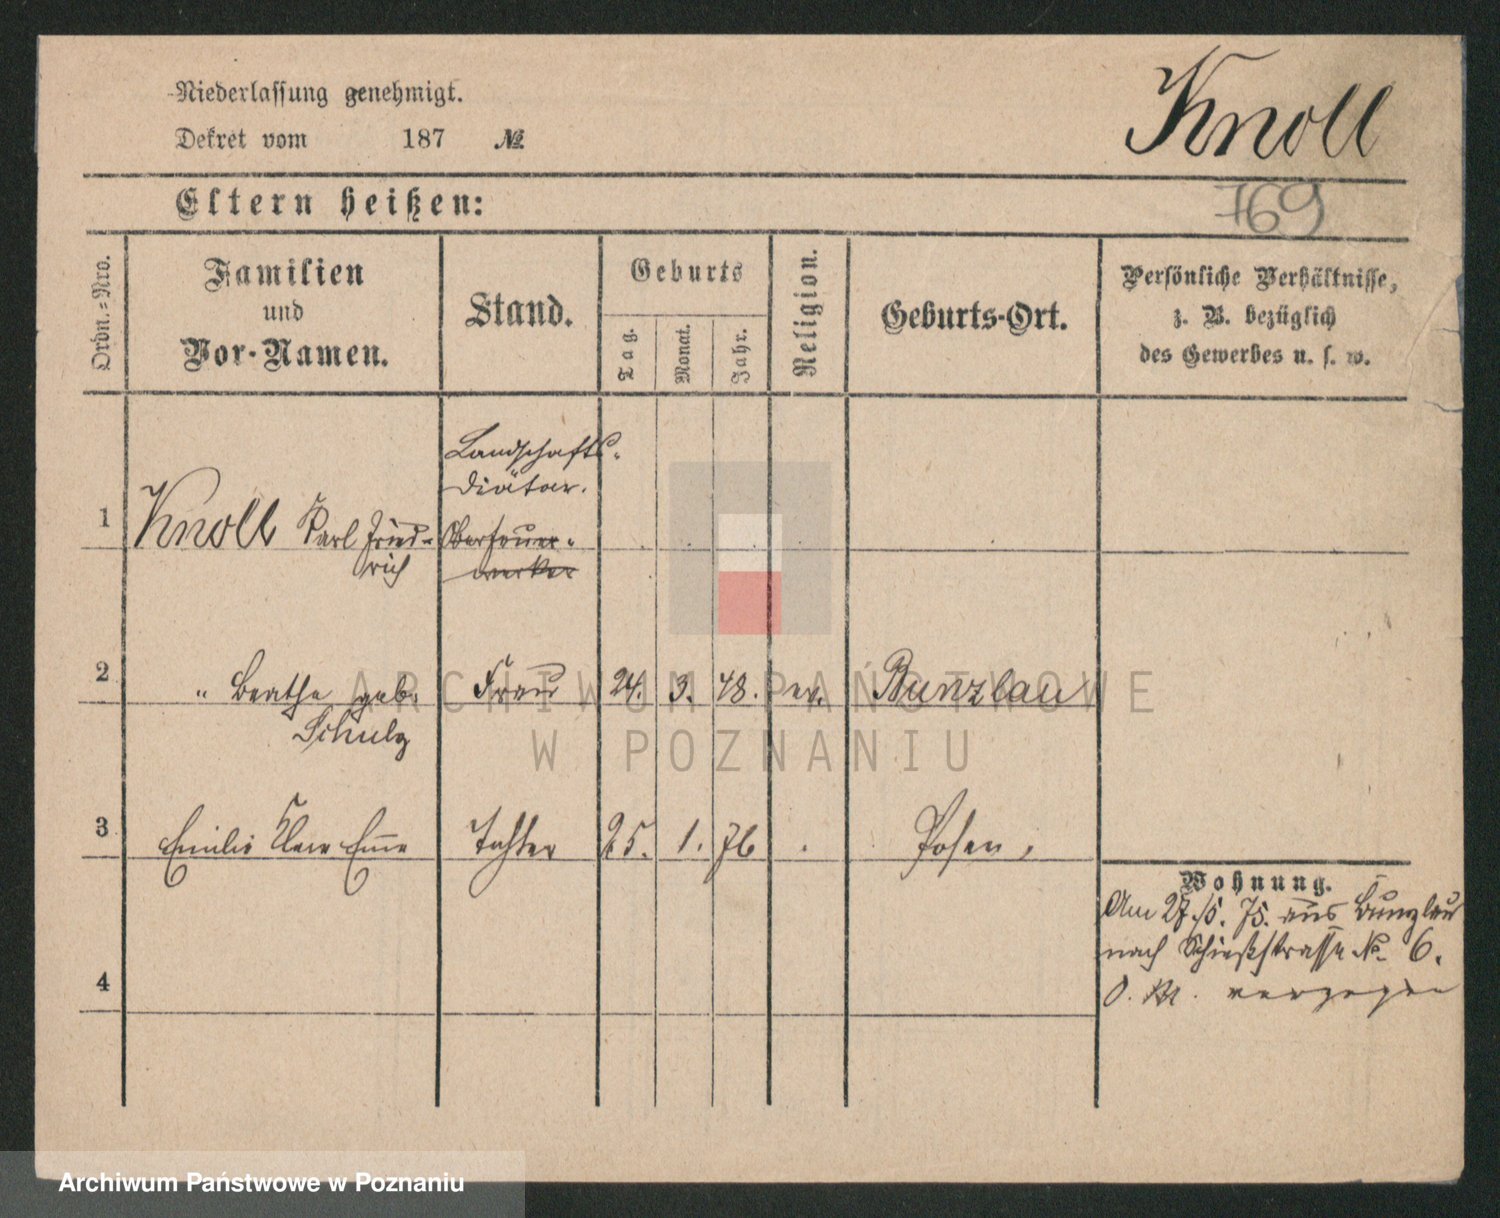 Niederlassung genehmigt.
Knoll
Dekret vom 187 №
769
Eltern heißen:
Ordn.=Nro.
Familien
und
Vor-Namen.
Stand.
Geburts
Tag.
Monat.
Jahr.
Religion.
Geburts-Ort.
Persönliche Verhältnisse,
z. B. bezüglich
des Gewerbes u. s. w.
Landschafts-
Diätar.
1 Knoll Karl Fried- Oberfeuer-
rich werker
2 " Beathe geb. Frau 24. 3. 48. ev. Bunzlau
Schulz
3 Emilie Clara Emma Tochter 25. 1. 76 . Posen,
Wohnung.
Am 27./5. 75. aus Bunzlau
nach Schießstrasse No 6.
4
verzogen
ARCHIWUM PAŃSTWOWE
W POZNANIU
Archiwum Państwowe w Poznaniu